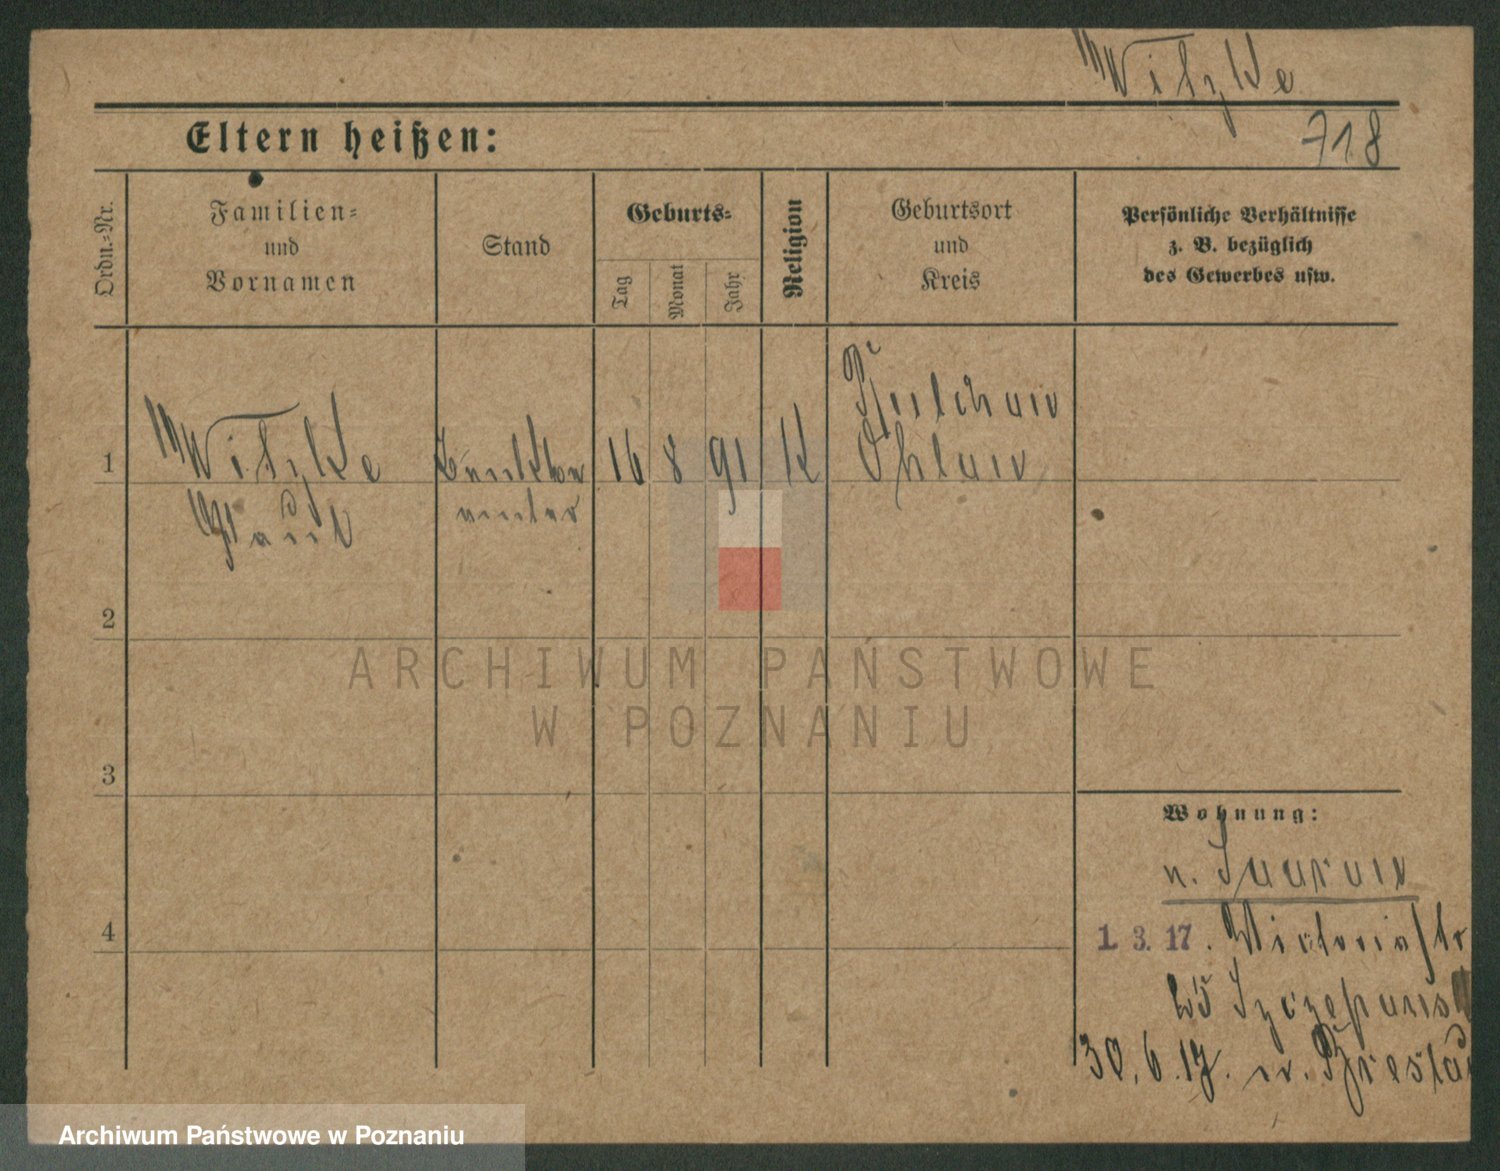 Witzke
718
Eltern heißen:
Ordn.=Nr.
Familien=
und
Vornamen
Stand
Geburts=
Tag
Monat
Jahr
Religion
Geburtsort
und
Kreis
Persönliche Verhältnisse
z. B. bezüglich
des Gewerbes usw.
1
Witzke
Paul
16
8
91
K
Ohlau
2
3
4
Wohnung:
n.
1. 3. 17. Viktoriastr
25 Szczepansk
30. 6. 17. n. Breslau
ARCHIWUM PAŃSTWOWE
W POZNANIU
Archiwum Państwowe w Poznaniu